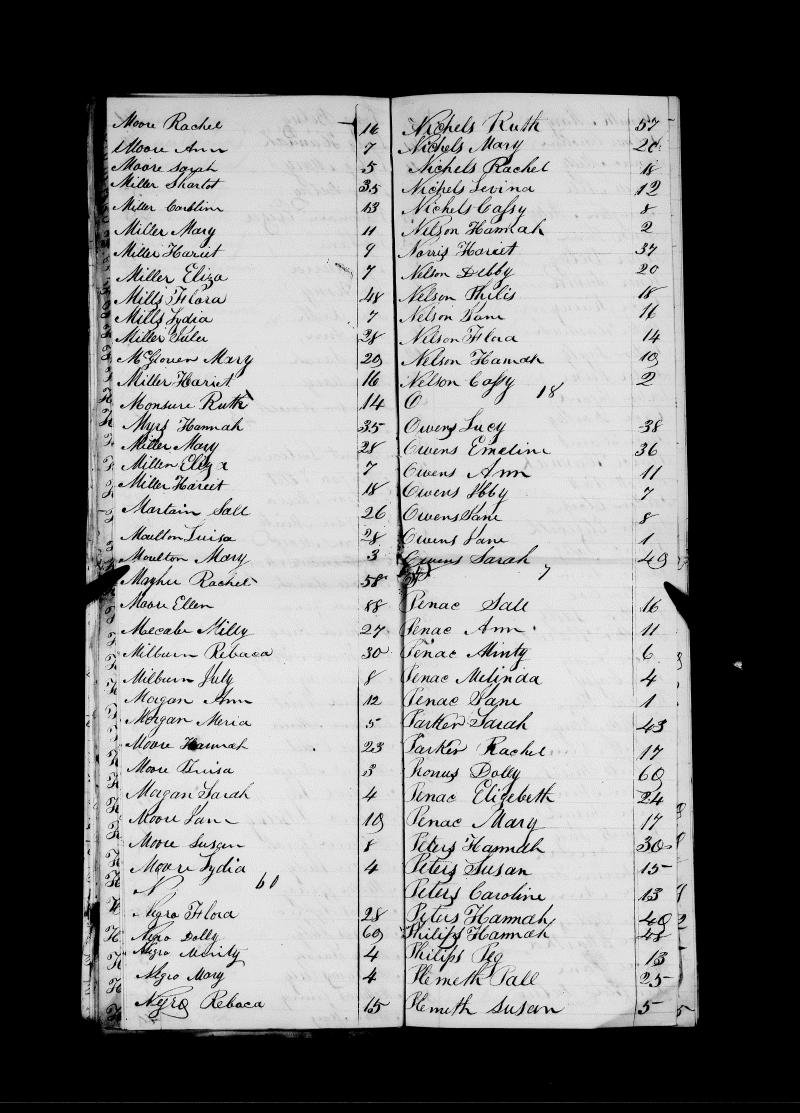 Moore Rachel 16
Moore Ann 7
Moore Sarah 5
Miller Sharlot 35
Miller Caroline 13
Miller Mary 11
Miller Hariet 9
Miller Eliza 7
Mills Flora 48
Mills Lydia 7
Miller Julia 28
McGlowen Mary 29
Miller Hariet 16
Monsure Ruth 14
Myrs Hannah 35
Miller Mary 28
Miller Eliza 7
Miller Hareit 18
Martain Sall 26
Moulton Luisa 28
Moulton Mary 3
Mayhu Rachel 58
Moore Ellen 88
Mecabe Milly 27
Milburn Rebaca 30
Milburn July 8
Morgan Ann 12
Morgan Meria 5
Moore Hannah 23
Moore Luisa 3
Morgan Sarah 4
Moore Jane 19
Moore Susan 8
Moore Lydia 4
N 60
Negro Flora 28
Negro Dolly 69
Negro Minty 4
Negro Mary 4
Negro Rebaca 15
Nichels Ruth 57
Nichels Mary 20
Nichels Rachel 18
Nichels Levina 12
Nichels Cassy 8
Nilson Hannah 2
Norris Hariet 37
Nelson Debby 20
Nelson Philis 18
Nelson Jane 16
Nelson Flora 14
Nelson Hannah 19
Nelson Cassy 2
O 18
Owens Lucy 38
Owens Emeline 36
Owens Ann 11
Owens Ibby 7
Owens Jane 8
Owens Jane 1
Owens Sarah 49
7
Penac Sall 16
Penac Ann 11
Penac Minty 6
Penac Melinda 4
Penac Jane 1
Parker Sarah 43
Parker Rachel 17
Ponus Dolly 69
Penac Elizebeth 24
Penac Mary 17
Peters Hannah 30
Peters Susan 15
Peters Caroline 13
Peters Hannah 40
Philips Hannah 48
Philips Peg 13
Hemeth Pall 25
Hemeth Susan 5